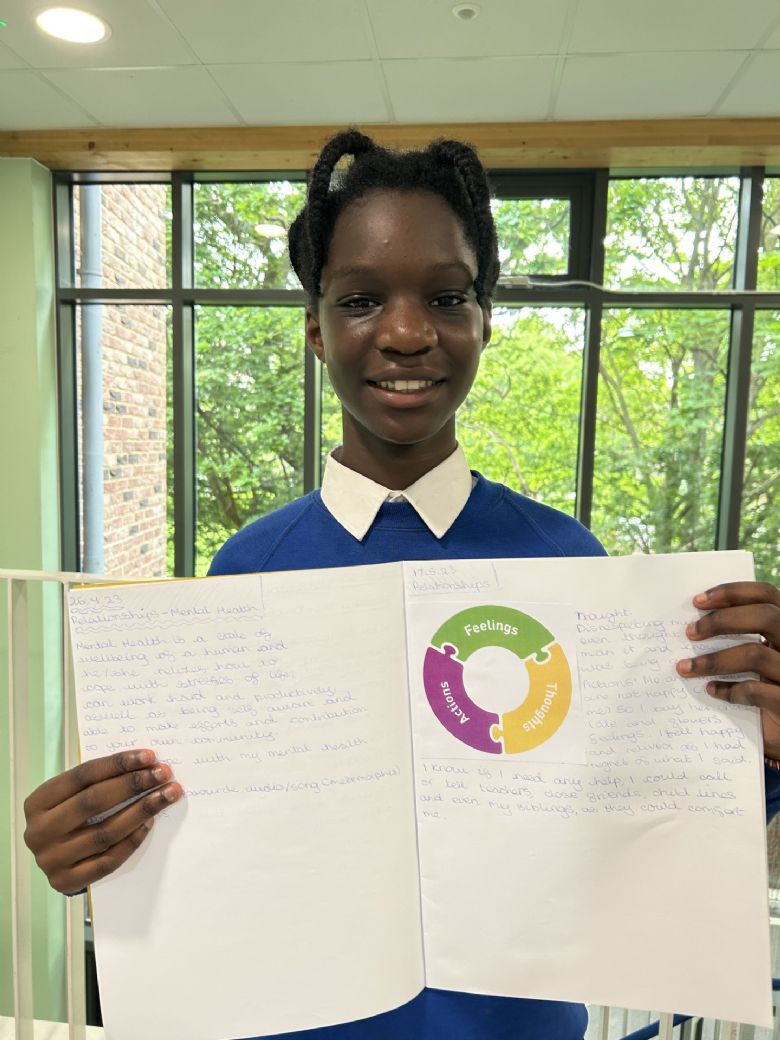 26.4.23
Relationships - Mental Health
Mental Health is a state of
wellbeing of a human and
he/she relizes how to
cope with stresses of life,
can work hard and productivly
aswell as being self aware and
able to make efforts and contribution
to your own community.
with my mental health
favourite audio/song (metamorphis)
17.5.23
Relationships
Feelings
Thoughts
Actions
Thought
Disrespecting my
even though
mean it and
was wrong
Actions: Me and
are not happy
me? So I buy her
late and flowers
Feelings: I felt happy
and relived as I had
regret of what I said.
I know if I need any help, I could call
or tell teachers, close friends, child lines
and even my siblings, as they could comfort
me.